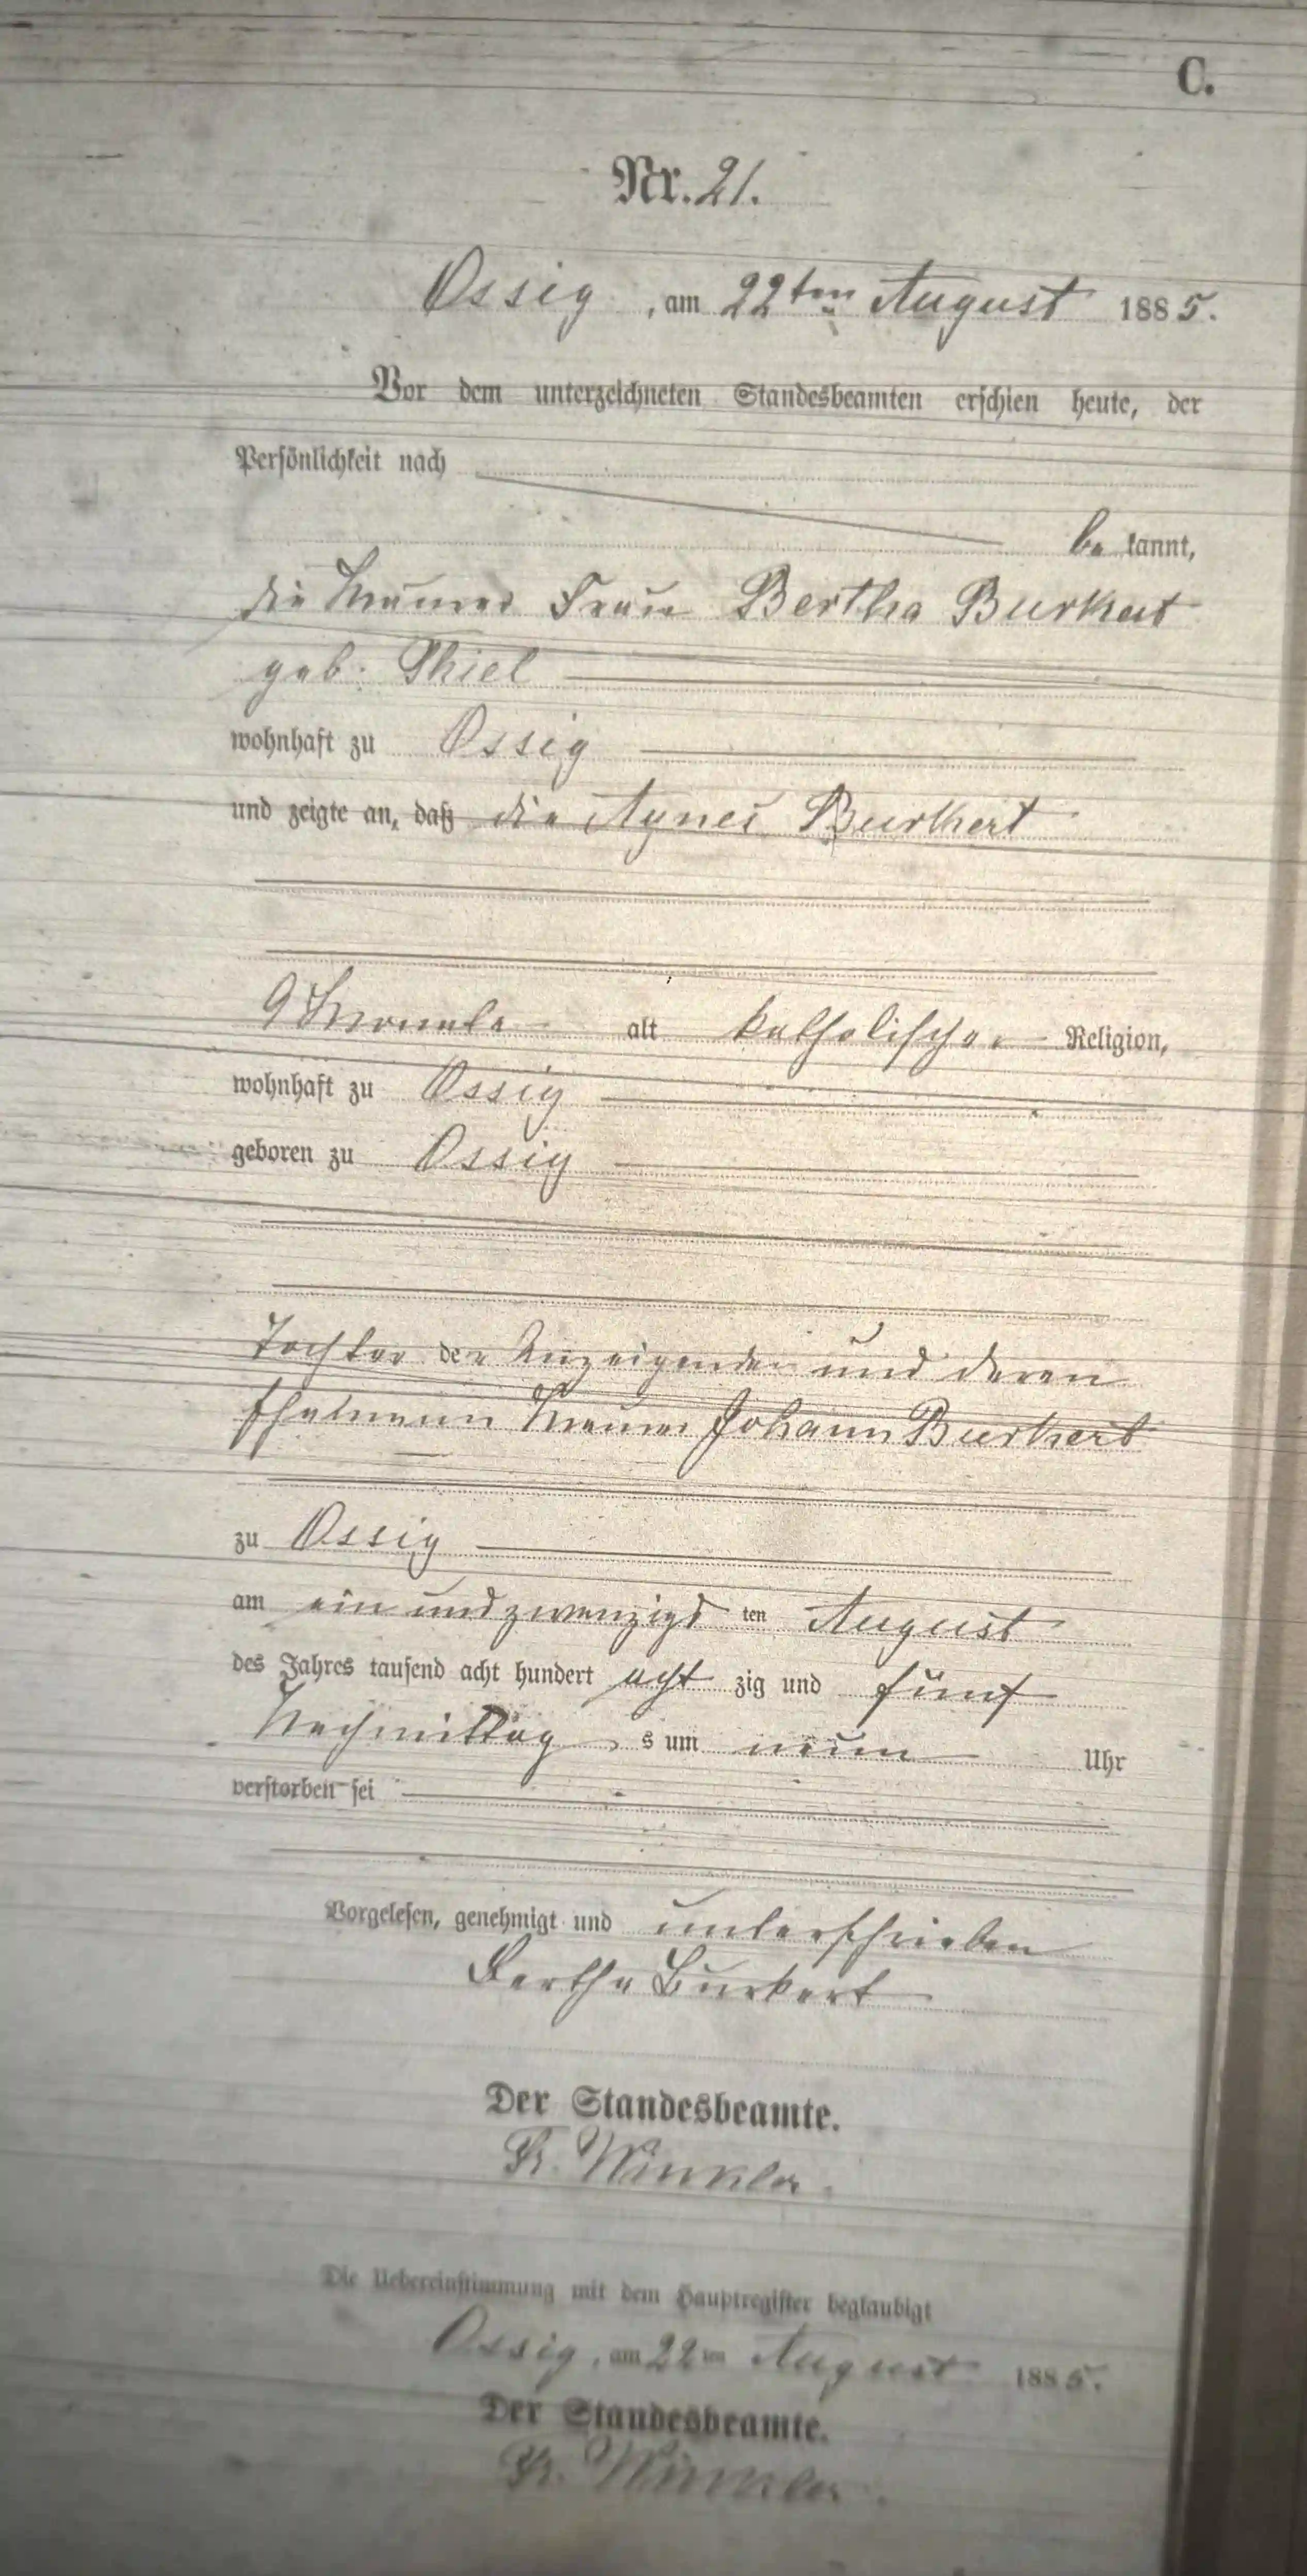 C.
Nr. 21.
Ossig, am 22ten August 1885.
Vor dem unterzeichneten Standesbeamten erschien heute, der
Persönlichkeit nach
be kannt,
die Maurer Frau Bertha Burkert
geb. Thiel
wohnhaft zu Ossig
und zeigte an, daß die Agnes Burkert
9 Monate alt katholischer Religion,
wohnhaft zu Ossig
geboren zu Ossig
Tochter der Anzeigenden und deren
Ehemann Maurer Johann Burkert
zu Ossig
am ein und zwanzigsten August
des Jahres tausend acht hundert acht zig und fünf
Nachmittag s um neun Uhr
verstorben sei
Vorgelesen, genehmigt und unterschrieben
Bertha Burkert
Der Standesbeamte.
Winkler.
Die Uebereinstimmung mit dem Hauptregister beglaubigt
Ossig, am 22ten August 1885.
Der Standesbeamte.
Winkler.